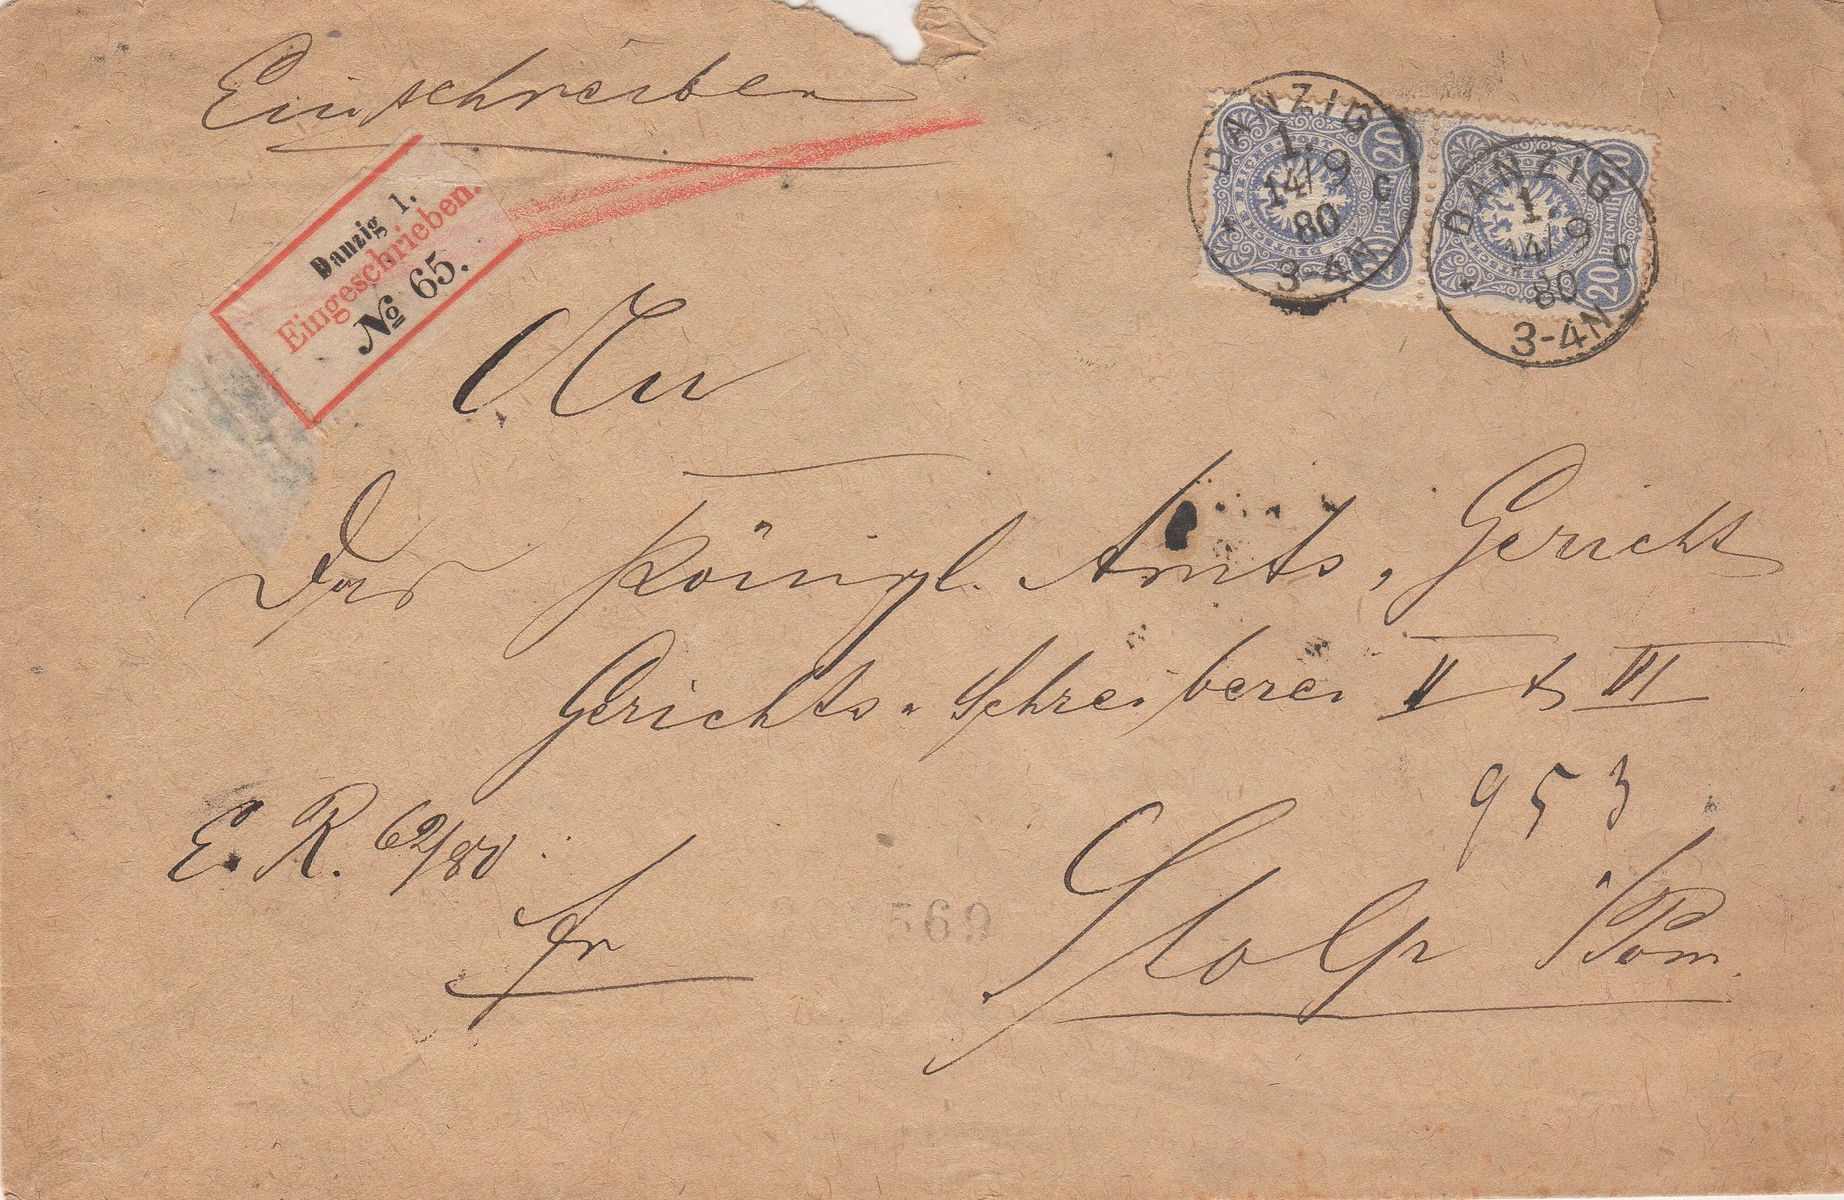 Einschreiben
Danzig 1.
Eingeschrieben.
№ 65.
DANZIG
1.
14/9
80
C
3-4N
DANZIG
1.
14/9
80
C
3-4N.
20 PFENNIG 20
20 PFENNIG 20
An
Das Königl. Amts-Gericht
Gerichts-Schreiberei V & VI
953
E. R. 62/80
fr
569
Stolp i/Pom.